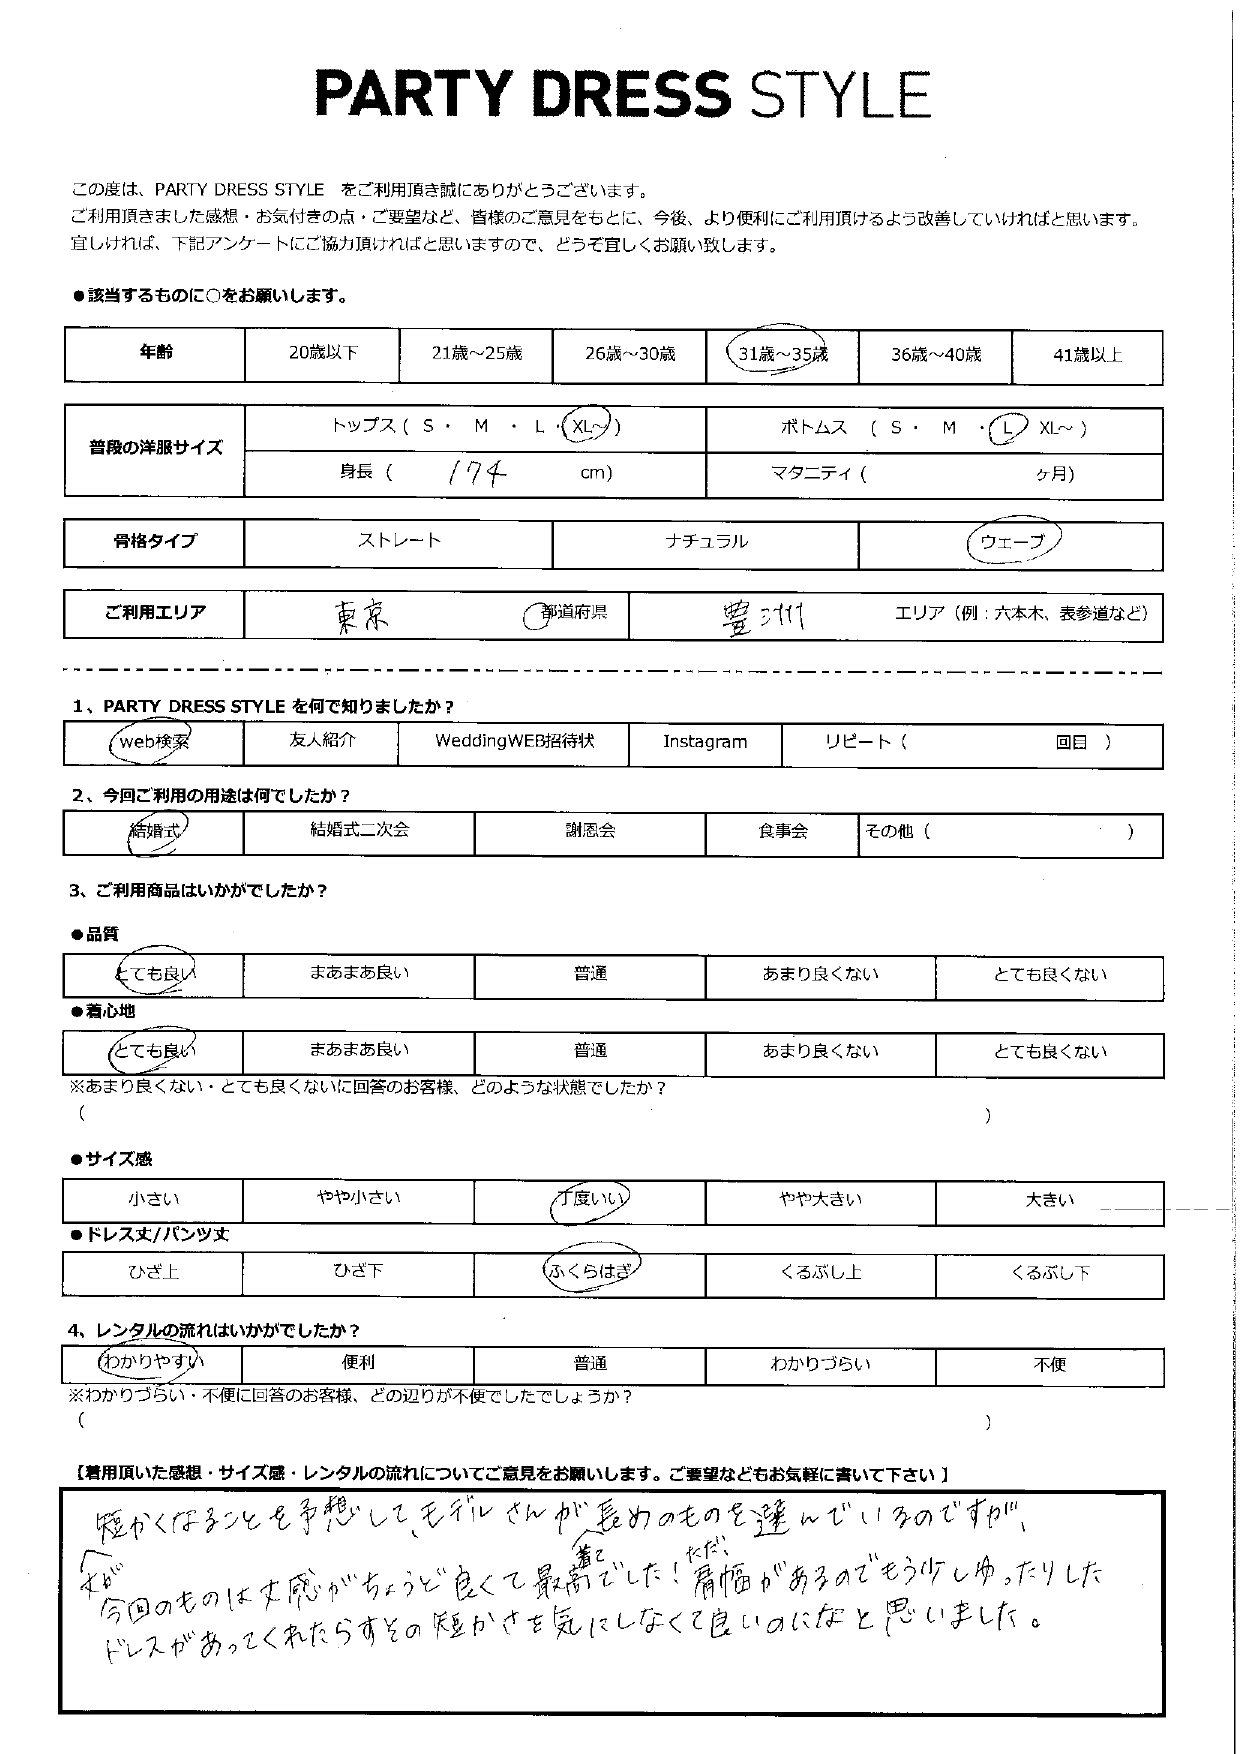 PARTY DRESS STYLE
この度は、PARTY DRESS STYLE をご利用頂き誠にありがとうございます。
ご利用頂きました感想・お気付きの点・ご要望など、皆様のご意見をもとに、今後、より便利にご利用頂けるよう改善していければと思います。
宜しければ、下記アンケートにご協力頂ければと思いますので、どうぞ宜しくお願い致します。
●該当するものに○をお願いします。
年齢 20歳以下 21歳～25歳 26歳～30歳 31歳～35歳 36歳～40歳 41歳以上
普段の洋服サイズ
トップス ( S ・ M ・ L ・ XL～ ) ボトムス ( S ・ M ・ L XL～ )
身長 ( 174 cm) マタニティ ( ヶ月)
骨格タイプ ストレート ナチュラル ウェーブ
ご利用エリア 東京 都道府県 豊洲 エリア（例：六本木、表参道など）
1、PARTY DRESS STYLE を何で知りましたか？
web検索 友人紹介 WeddingWEB招待状 Instagram リピート ( 回目 )
2、今回ご利用の用途は何でしたか？
結婚式 結婚式二次会 謝恩会 食事会 その他 ( )
3、ご利用商品はいかがでしたか？
●品質
とても良い まあまあ良い 普通 あまり良くない とても良くない
●着心地
とても良い まあまあ良い 普通 あまり良くない とても良くない
※あまり良くない・とても良くないに回答のお客様、どのような状態でしたか？
( )
●サイズ感
小さい やや小さい 丁度いい やや大きい 大きい
●ドレス丈/パンツ丈
ひざ上 ひざ下 ふくらはぎ くるぶし上 くるぶし下
4、レンタルの流れはいかがでしたか？
わかりやすい 便利 普通 わかりづらい 不便
※わかりづらい・不便に回答のお客様、どの辺りが不便でしたでしょうか？
( )
【着用頂いた感想・サイズ感・レンタルの流れについてご意見をお願いします。ご要望などもお気軽に書いて下さい 】
短かくなることを予想して、モデルさんが長めのものを選んでいるのですが、
丈が 着て ただ、
今回のものは丈感がちょうど良くて最高でした！肩幅があるのでもう少しゆったりした
ドレスがあってくれたらすその短かさを気にしなくて良いのになと思いました。